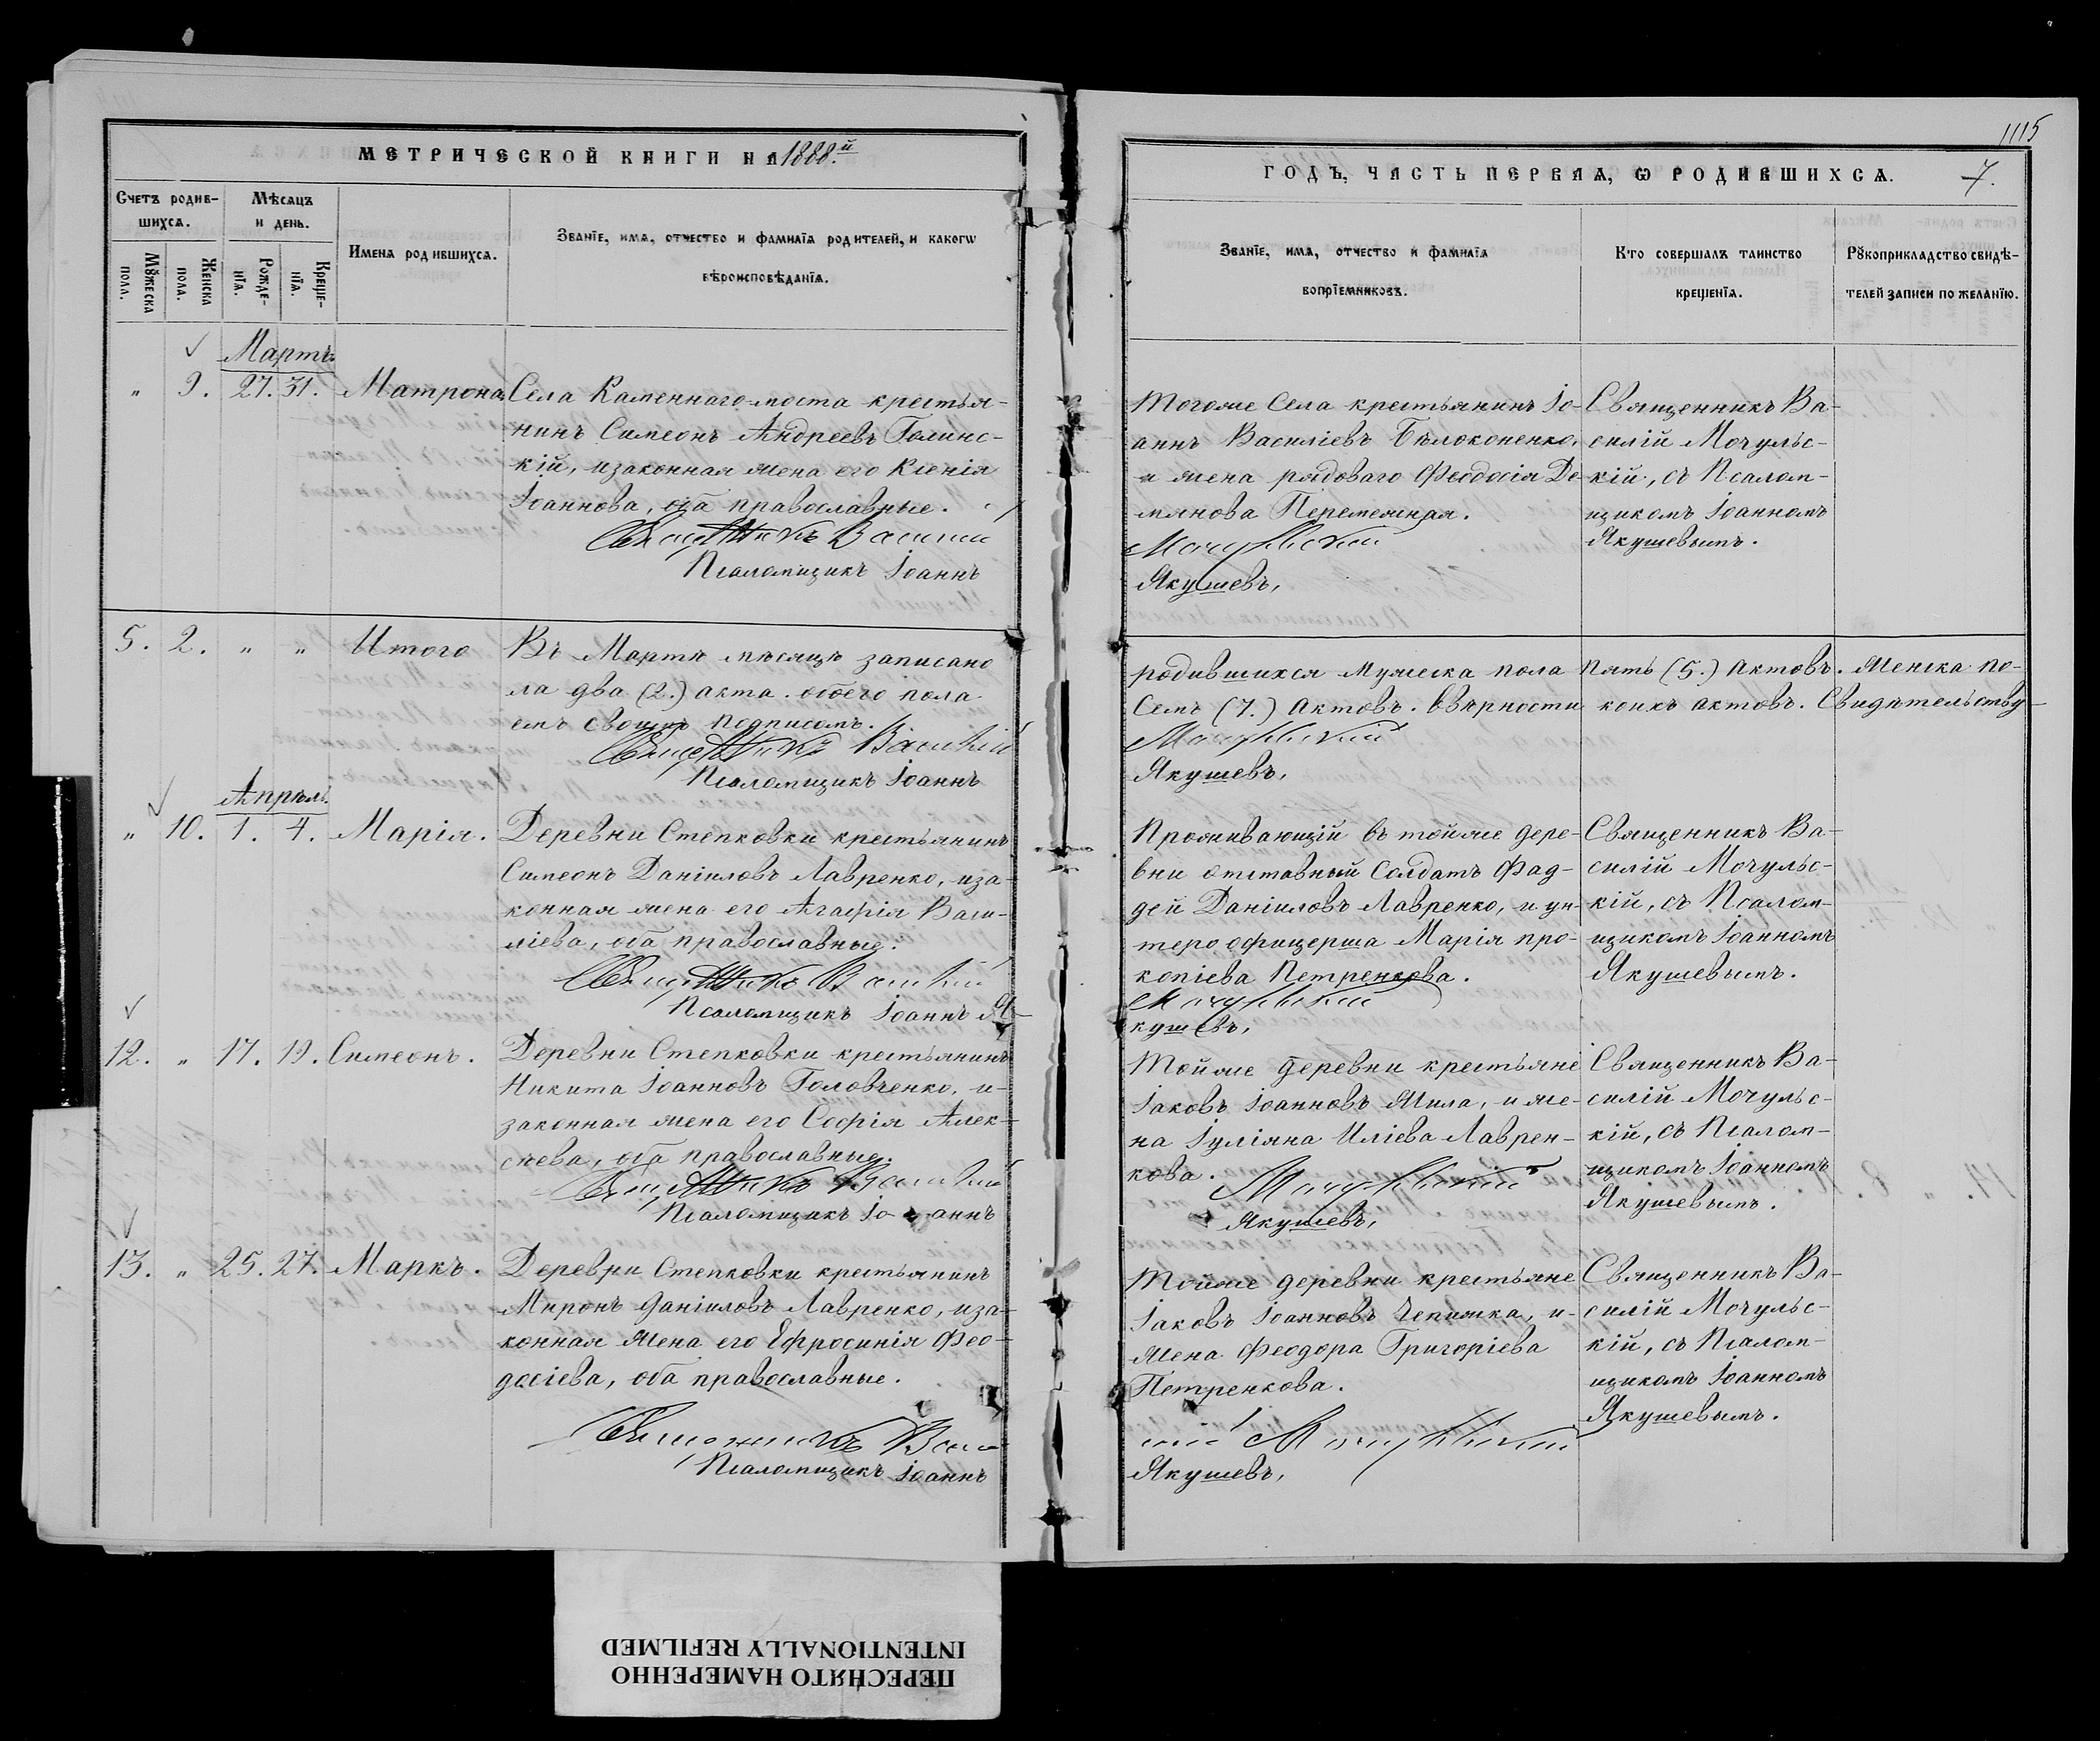 1115
МЕТРИЧЕСКОЙ КНИГИ НА 1888.й
ГОДЪ, ЧАСТЬ ПЕРВАѦ, Ѡ РОДИВШИХСѦ.
7.
Счетъ родив-
шихсѧ.
Мѣсѧцъ
и день.
Мꙋжеска
пола.
Женска
пола.
Рожде-
нїѧ.
Креще-
нїѧ.
Имена родившихсѧ.
Званїе, имѧ, отчество и фамилїѧ родителей, и какогѡ
вѣроисповѣданїѧ.
Званїе, имѧ, отчество и фамилїѧ
воспрїемниковъ.
Кто совершалъ таинство
крещенїѧ.
Рꙋкоприкладство свидѣ-
телей записи по желанїю.
Мартъ
" 9. 27. 31. Матрона
Села Каменнаго-моста крестья-
нинъ Симеонъ Андреевъ Голинс-
кій, изаконная жена его Ксенія
Іоаннова, оба православные.
Священникъ Василій
Псаломщикъ Іоаннъ
Тогоже Села крестьянинъ Іо-
аннъ Василіевъ Бѣлоконенко,
и жена рядоваго Феодосія Де-
мянова Перемежная.
Мочульскій
Якушевъ,
Священникъ Ва-
силій Мочульс-
кій, съ Псалом-
щикомъ Іоанномъ
Якушевымъ.
5. 2. " " Итого
Въ Мартѣ мѣсяцѣ записано
ла два (2.) акта. обоего пола
емъ своимъ подписомъ.
Священникъ Василій
Псаломщикъ Іоаннъ
родившихся мужеска пола пять (5.) Актовъ. Женска по-
Семъ (7.) Актовъ. Вѣрности коихъ актовъ. Свидѣтельству-
Мочульскій
Якушевъ,
Апрѣль.
" 10. 1. 4. Марія.
Деревни Степковки крестьянинъ
Симеонъ Даніиловъ Лавренко, иза-
конная жена его Агафія Васи-
ліева, оба православные.
Священникъ Василій
Псаломщикъ Іоаннъ Я-
Проживающій въ тойже дере-
вни отставный Солдатъ Фад-
дей Даніиловъ Лавренко, и ун-
теро офицерша Марія про-
копіева Петренкова.
Мочульскій
кушевъ,
Священникъ Ва-
силій Мочульс-
кій, съ Псалом-
щикомъ Іоанномъ
Якушевымъ.
12. " 17. 19. Симеонъ.
Деревни Степковки крестьянинъ
Никита Іоанновъ Головченко, и-
законная жена его Софія Алек-
сѣева, оба православные.
Священникъ Василій
Псаломщикъ Іо- аннъ
Тойже деревни крестьяне
Іаковъ Іоанновъ Жила, и же-
на Іуліяна Иліева Лаврен-
кова.
Мочульскій
Якушевъ,
Священникъ Ва-
силій Мочульс-
кій, съ Псалом-
щикомъ Іоанномъ
Якушевымъ.
13. " 25. 27. Маркъ.
Деревни Степковки крестьянинъ
Миронъ Даніиловъ Лавренко, иза-
конная жена его Ефросинія Фео-
досіева, оба православные.
Священникъ Васи-
Псаломщикъ Іоаннъ
Тойже деревни крестьяне
Іаковъ Іоанновъ Чепижка, и-
жена Феодора Григоріева
Петренкова.
лій Мочульскій
Якушевъ,
Священникъ Ва-
силій Мочульс-
кій, съ Псалом-
щикомъ Іоанномъ
Якушевымъ.
ПЕРЕСНЯТО НАМЕРЕННО
INTENTIONALLY REFILMED